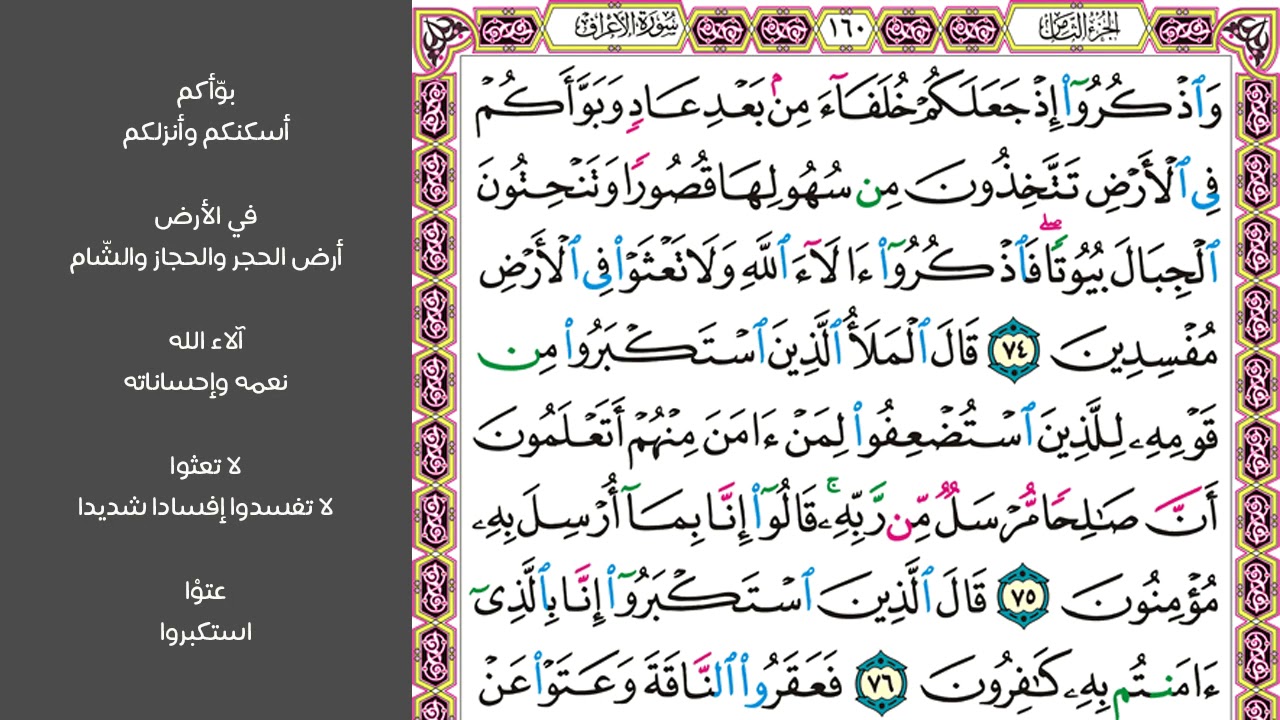 الجزء الثامن
١٦٠
سورة الأعراف
وَٱذْكُرُوٓا۟ إِذْ جَعَلَكُمْ خُلَفَآءَ مِنۢ بَعْدِ عَادٍ وَبَوَّأَكُمْ
فِى ٱلْأَرْضِ تَتَّخِذُونَ مِن سُهُولِهَا قُصُورًا وَتَنْحِتُونَ
ٱلْجِبَالَ بُيُوتًا ۖ فَٱذْكُرُوٓا۟ ءَالَآءَ ٱللَّهِ وَلَا تَعْثَوْا۟ فِى ٱلْأَرْضِ
مُفْسِدِينَ ٧٤ قَالَ ٱلْمَلَأُ ٱلَّذِينَ ٱسْتَكْبَرُوا۟ مِن
قَوْمِهِۦ لِلَّذِينَ ٱسْتُضْعِفُوا۟ لِمَنْ ءَامَنَ مِنْهُمْ أَتَعْلَمُونَ
أَنَّ صَـٰلِحًا مُّرْسَلٌ مِّن رَّبِّهِۦ ۚ قَالُوٓا۟ إِنَّا بِمَآ أُرْسِلَ بِهِۦ
مُؤْمِنُونَ ٧٥ قَالَ ٱلَّذِينَ ٱسْتَكْبَرُوٓا۟ إِنَّا بِٱلَّذِىٓ
ءَامَنتُم بِهِۦ كَـٰفِرُونَ ٧٦ فَعَقَرُوا۟ ٱلنَّاقَةَ وَعَتَوْا۟ عَنْ
بوّأكم
أسكنكم وأنزلكم
في الأرض
أرض الحجر والحجاز والشّام
آلاء الله
نعمه وإحساناته
لا تعثوا
لا تفسدوا إفسادا شديدا
عتوْا
استكبروا